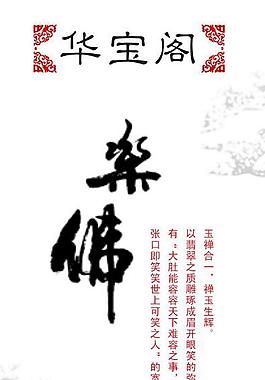 华宝阁
乐佛
玉禅合一，禅玉生辉。
以翡翠之质雕琢成眉开眼笑的弥
有“大肚能容容天下难容之事，
张口即笑笑世上可笑之人”的宽